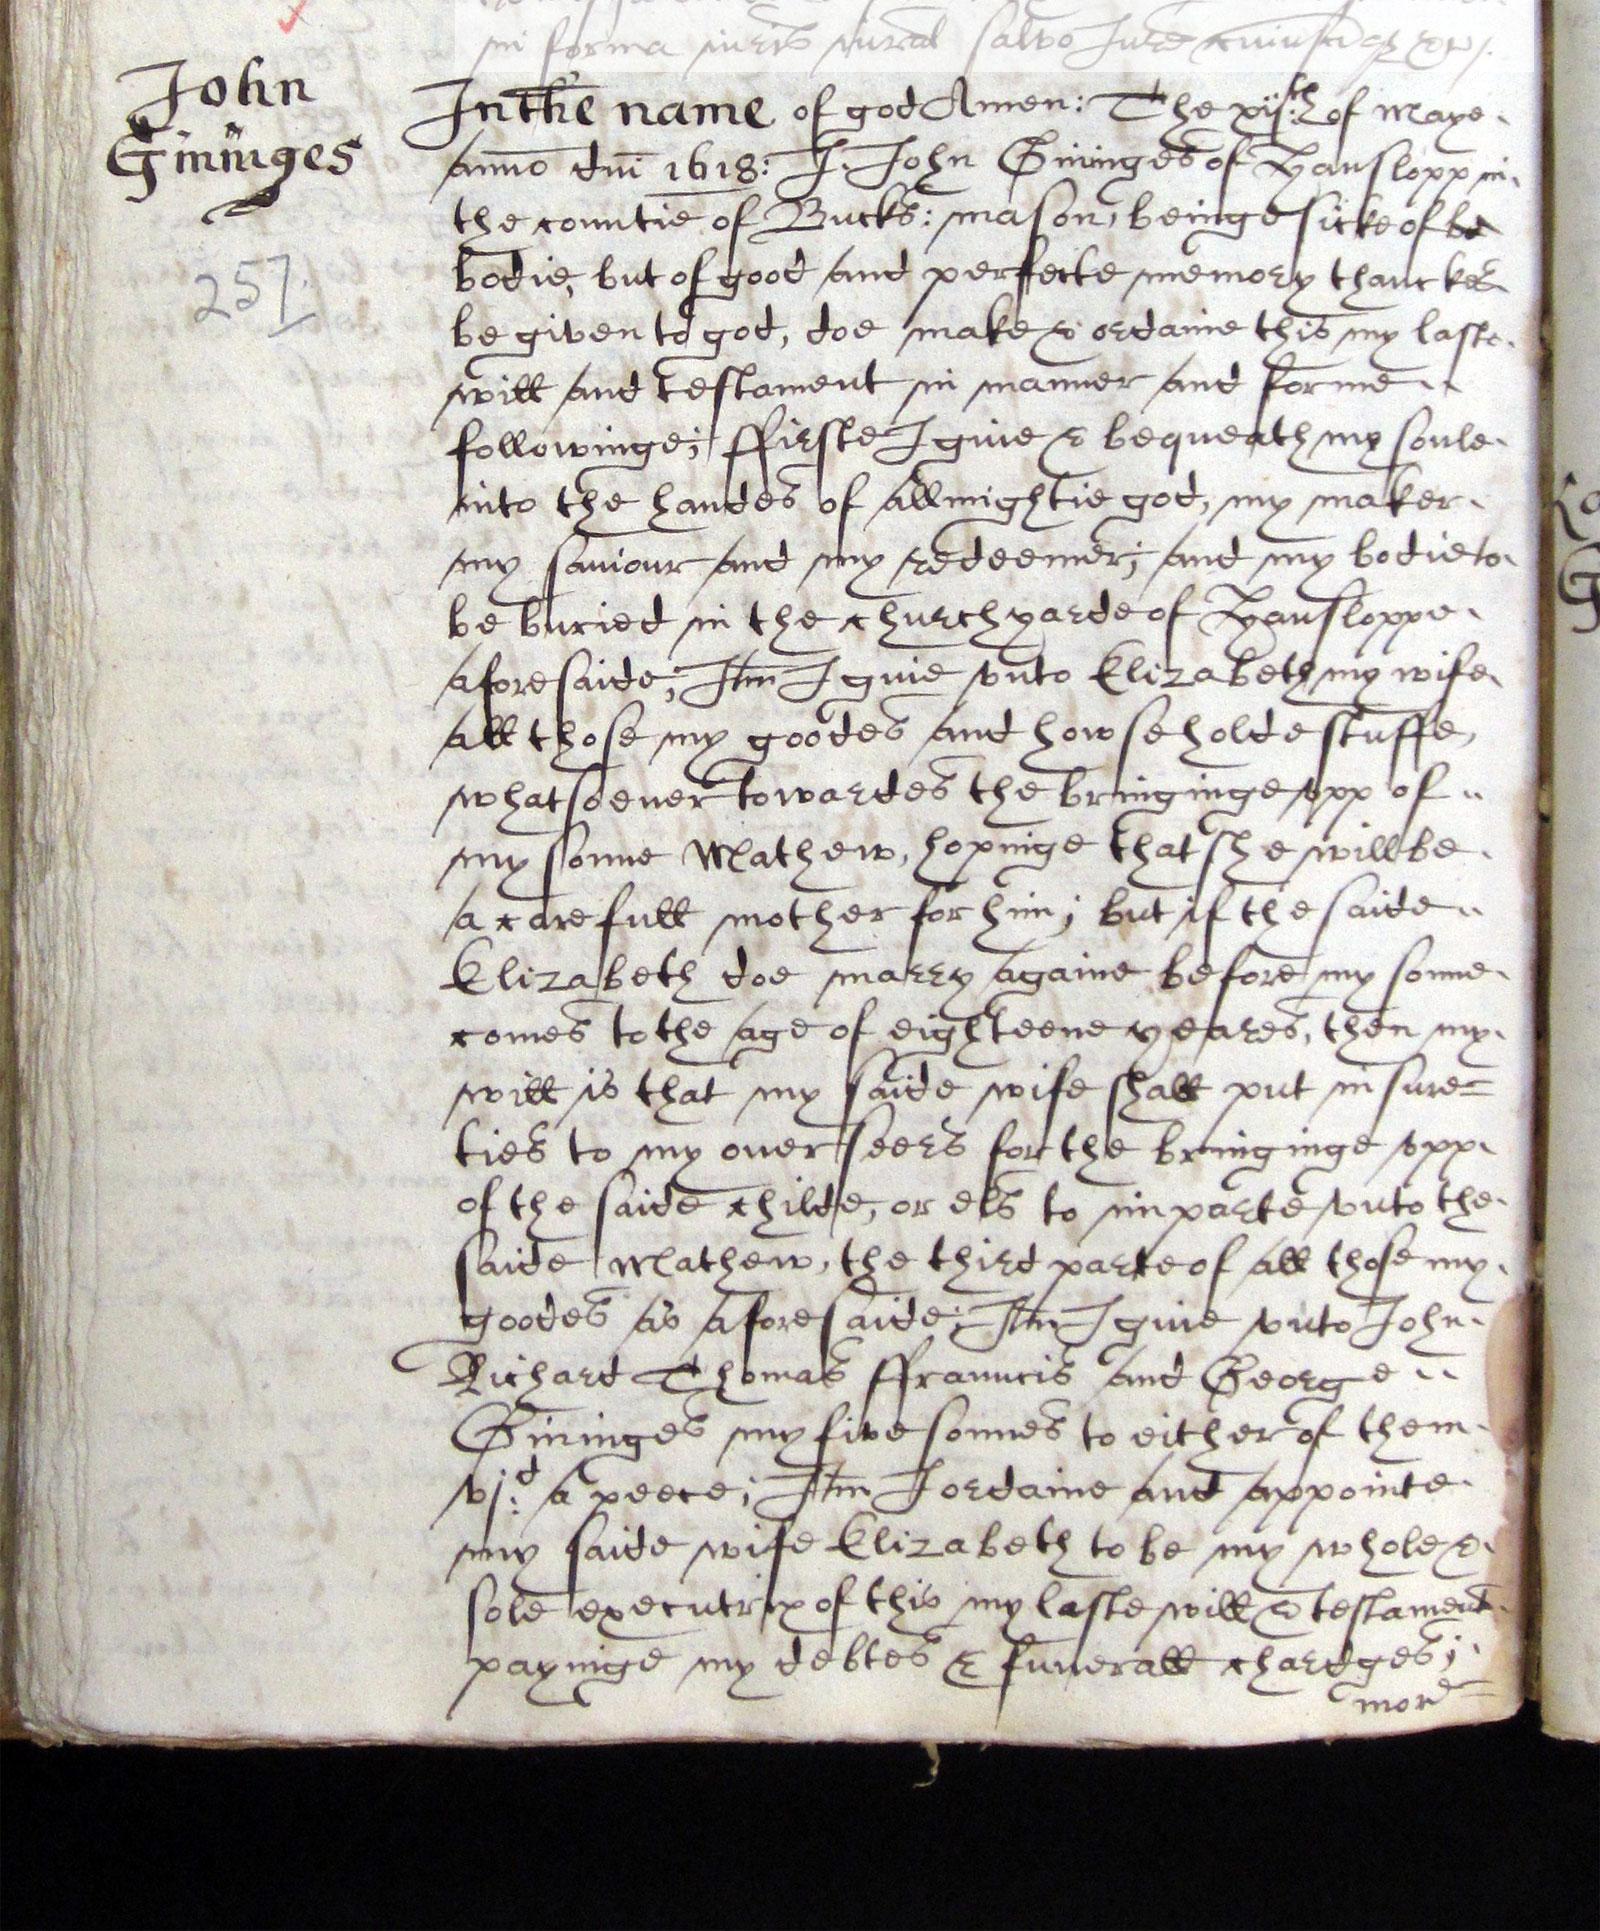 in forma iuris iurat salvo Jure cuiuscūqʒ &c.
John
Gininges
257.
In the name of god Amen: The xijth of Maye
anno dni 1618: I John Gininges of Hanslopp in
the countie of Bucks: mason, beinge sicke of bo
bodie, but of good and perfecte memory thanckes
be given to god, doe make & ordaine this my laste
will and testament in manner and forme
followinge; ffirste I giue & bequeath my soule
into the handes of allmightie god, my maker
my saviour and my redeemer; and my bodie to
be buried in the churchyarde of Hansloppe
aforesaide; Itm I giue vnto Elizabeth my wife
all those my goodes and howseholde stuffe,
whatsoeuer towardes the bringinge vpp of
my sonne Mathew, hopinge that she will be
a carefull mother for him; but if the saide
Elizabeth doe marry againe before my sonne
comes to the age of eighteene yeares, then my
will is that my saide wife shall put in sure=
ties to my overseers for the bringinge vpp
of the saide childe, or els to imparte vnto the
saide Mathew, the third parte of all those my
goodes as aforesaide; Itm I giue vnto John
Richard Thomas ffranncis and George
Gininges my five sonnes to either of them
vj:d a peece; Itm I ordaine and appointe
my saide wife Elizabeth to be my whole &
sole executrix of this my laste will & testament
payinge my debtes & funerall chardges;
more